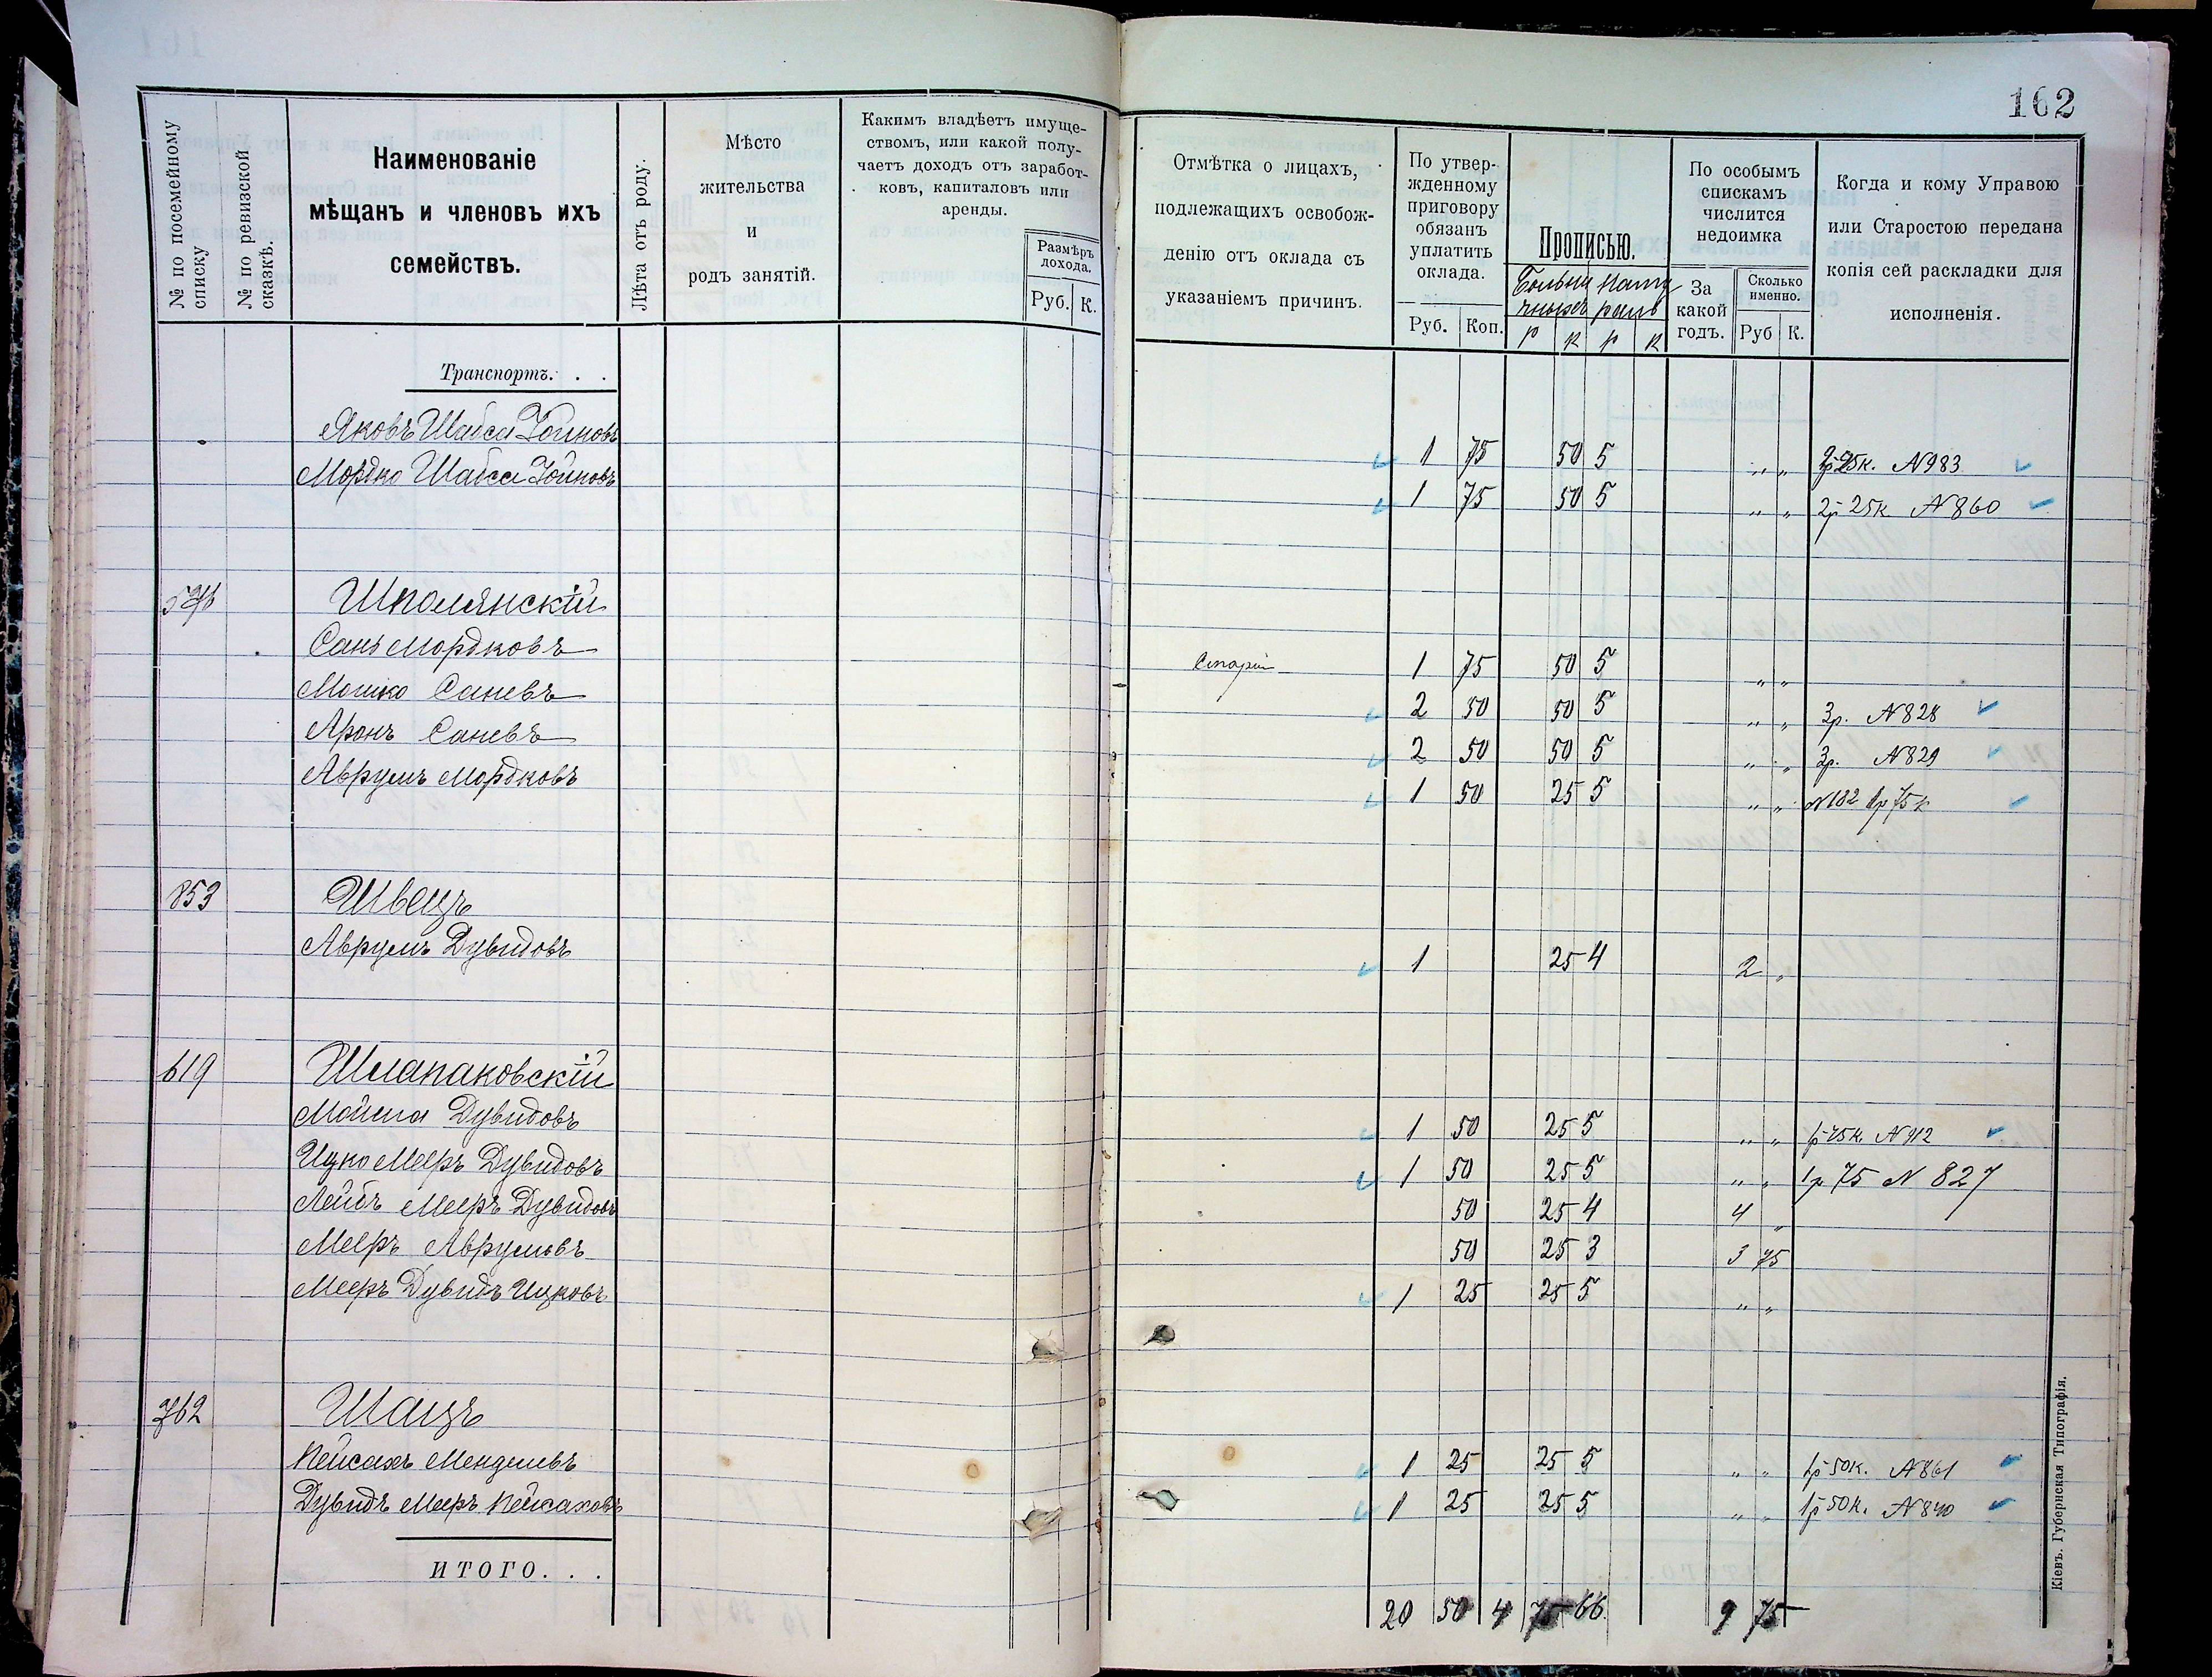 162
№ по посемейному списку
№ по ревизской сказкѣ.
Наименованіе
мѣщанъ и членовъ ихъ
семействъ.
Лѣта отъ роду.
Мѣсто
жительства
и
родъ занятій.
Какимъ владѣетъ имуще-
ствомъ, или какой полу-
чаетъ доходъ отъ заработ-
ковъ, капиталовъ или
аренды.
Размѣръ
дохода.
Руб. К.
Отмѣтка о лицахъ,
подлежащихъ освобож-
денію отъ оклада съ
указаніемъ причинъ.
По утвер-
жденному
приговору
обязанъ
уплатить
оклада.
Руб. Коп.
Прописью.
р к р к
По особымъ
спискамъ
числится
недоимка
За
какой
годъ.
Сколько
именно.
Руб К.
Когда и кому Управою
или Старостою передана
копія сей раскладки для
исполненія.
Транспортъ. . .
Яковъ Шабса Іойновъ 1 75 50 5 „ „ №983
Мордко Шабса Іойновъ 1 75 50 5 „ „ 2р 25к №860
Шполянскій
Сань Мордковъ Старый 1 75 50 5 „ „
Мошко Саневъ 2 50 50 5 „ „ 3р. №828
Аронъ Саневъ 2 50 50 5 „ „ 3р. №829
Аврумъ Мордковъ 1 50 25 5 „ „ №182 1р 75к
853 Швецъ
Аврумъ Дувидовъ 1 25 4 2 „
619 Шлапаковскій
Мойша Дувидовъ 1 50 25 5 „ „ 1р 75к №912
Ицко Мееръ Дувидовъ 1 50 25 5 „ „ 1р 75 № 827
Лейбъ Мееръ Дувидовъ 50 25 4 4 „
Мееръ Аврумовъ 50 25 3 3 75
Мееръ Дувидъ Ицковъ 1 25 25 5 „ „
762 Шацъ
Пейсахъ Менделевъ 1 25 25 5 „ „ 1р 50к. №861
Дувидъ Мееръ Пейсаховъ 1 25 25 5 „ „ 1р 50к. №840
ИТОГО. . .
20 50 4 75 66 9 75
Кіевъ. Губернская Типографія.